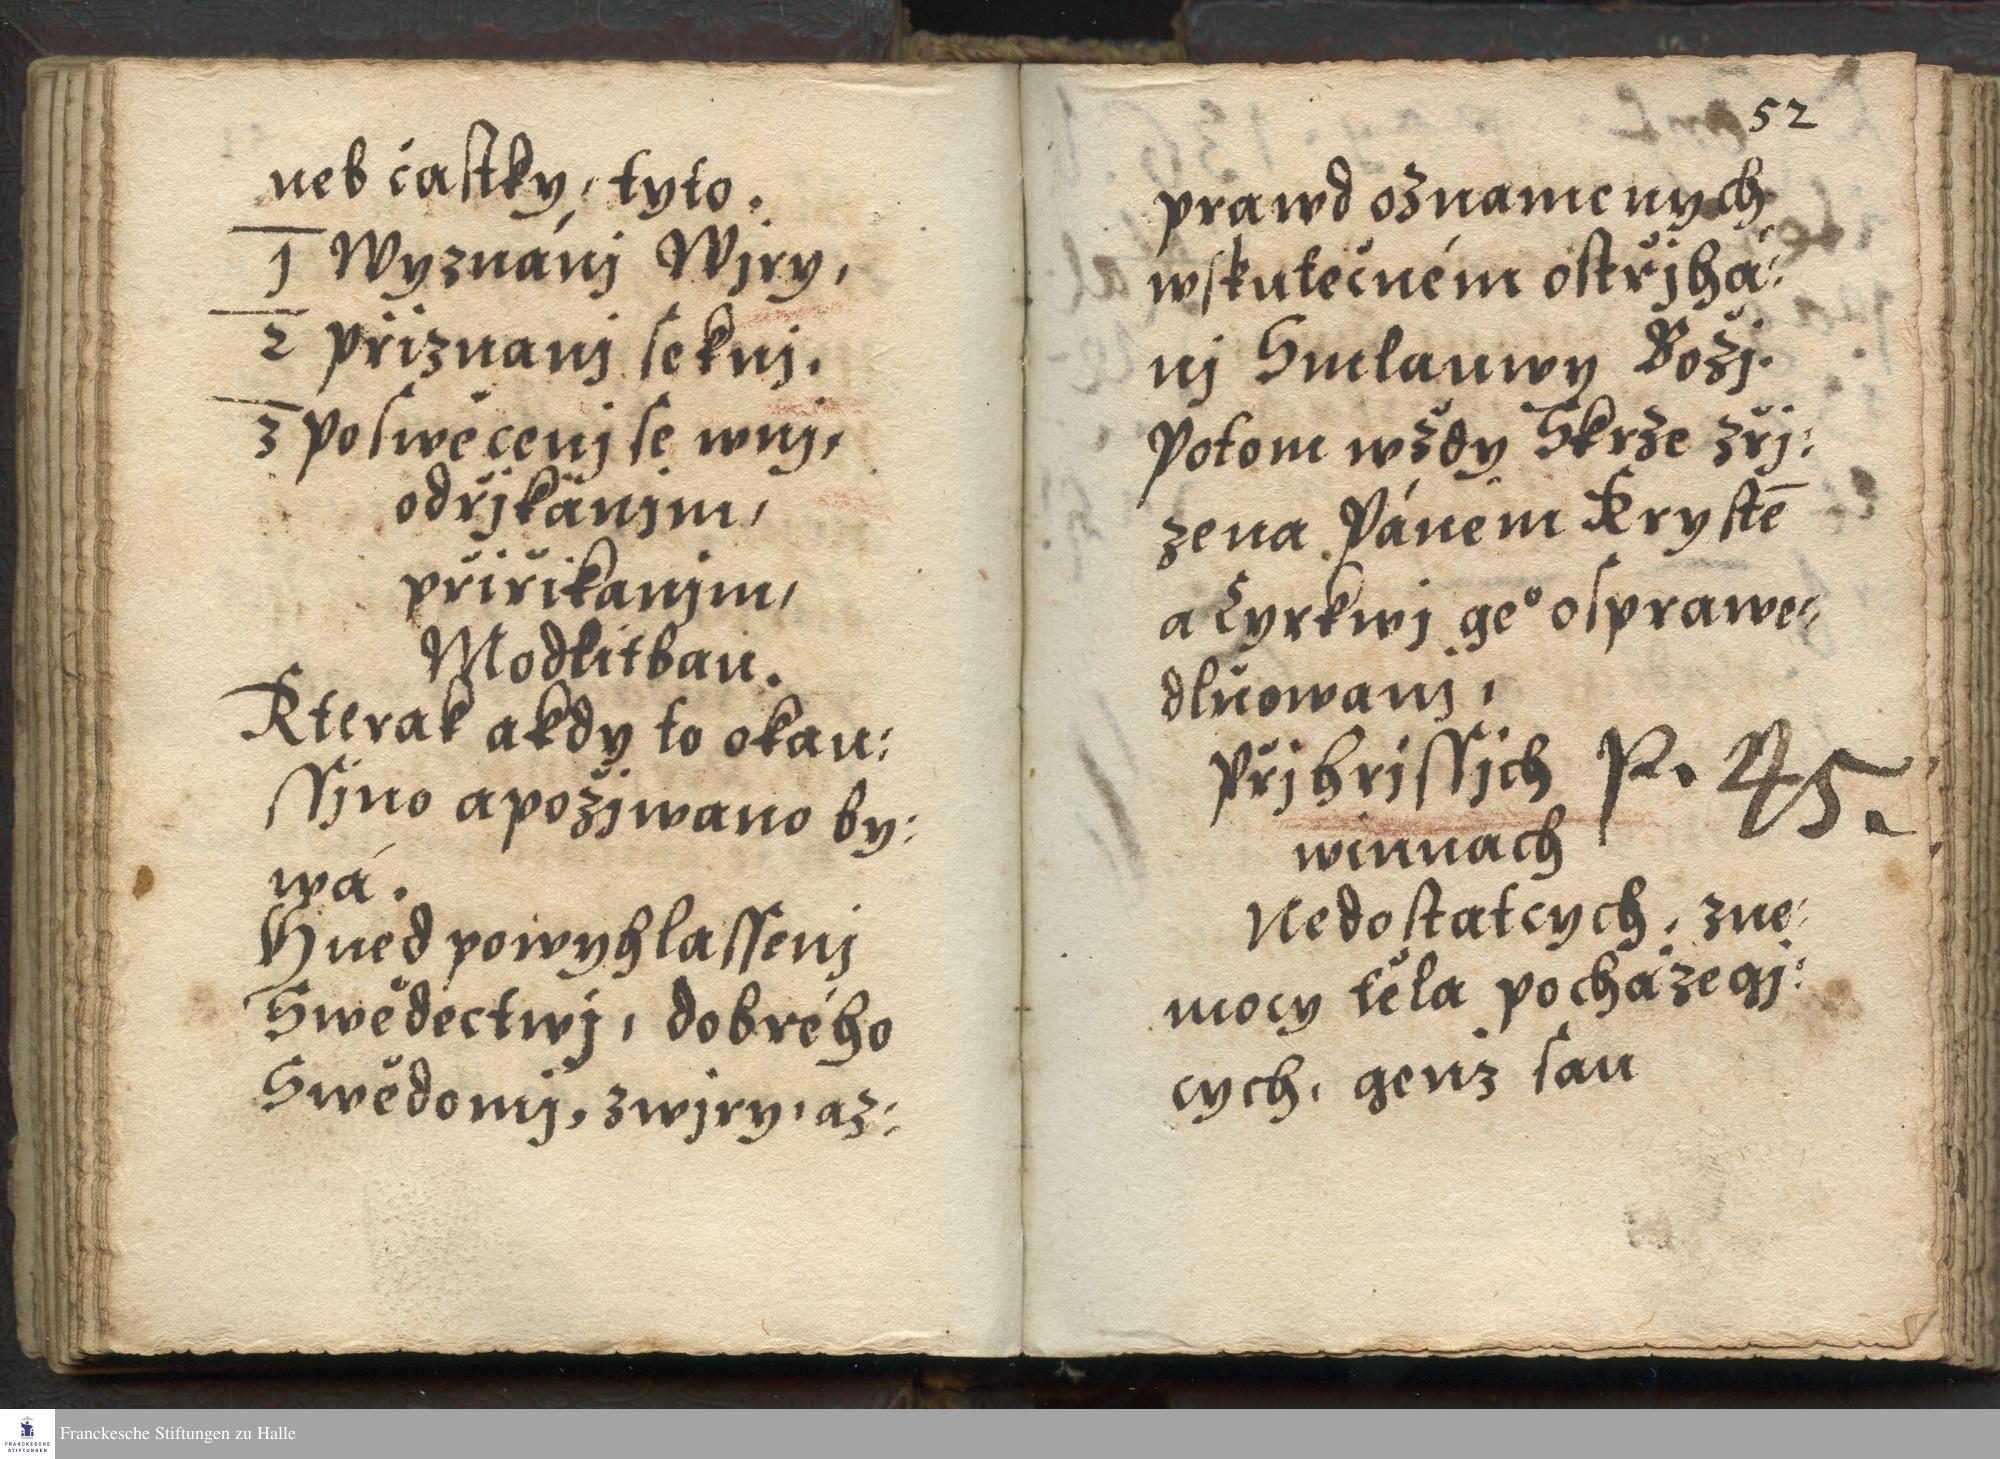 neb částky, tyto.
1 Wyznánj Wjry,
2 přiznanj se knj.
3 poswěcenj se wnj,
odřjkánjm,
přiřikanjm,
Modlitbau.
Kterak akdy to okau:
ssjno apožjwano by:
wá.
Hned powyhlassenj
Swědectwj, dobrého
Swědomj, zwjry, az:
52
prawd oznamenych
wskutečném ostřjhá:
nj Smlauwy Božj.
Potom wždy Skrze zřj:
zena Pánem Krystē
a Cyrkwj geº osprawe:
dlňowanj,
Přj hřjssjch P. 45.
winnach
Nedostatcych, zne:
mocy těla pocházegj:
cych, genž sau
Franckesche Stiftungen zu Halle
FRANCKESCHE
STIFTUNGEN